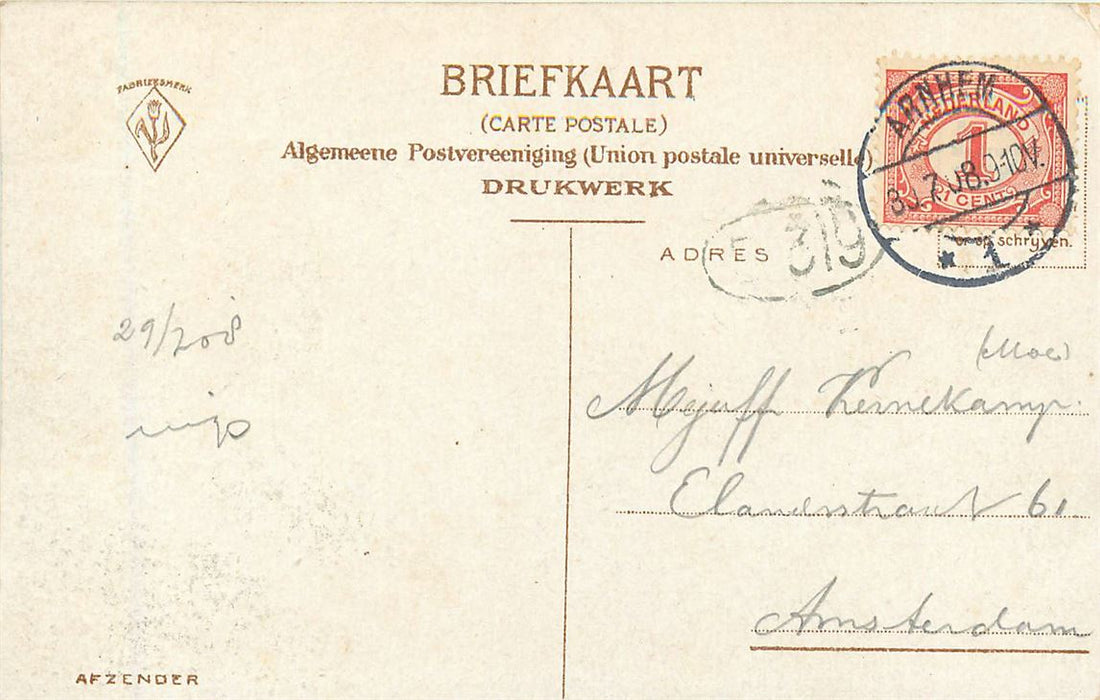 FABRIEKSMERK
BRIEFKAART
(CARTE POSTALE)
Algemeene Postvereeniging (Union postale universelle)
DRUKWERK
ARNHEM
NEDERLAND
1
1 CENT
9-10V.
1
schrijven.
ADRES
319
29/7 08
(Moe)
Mejuff Kernekamp.
Elandsstraat 61
Amsterdam
AFZENDER